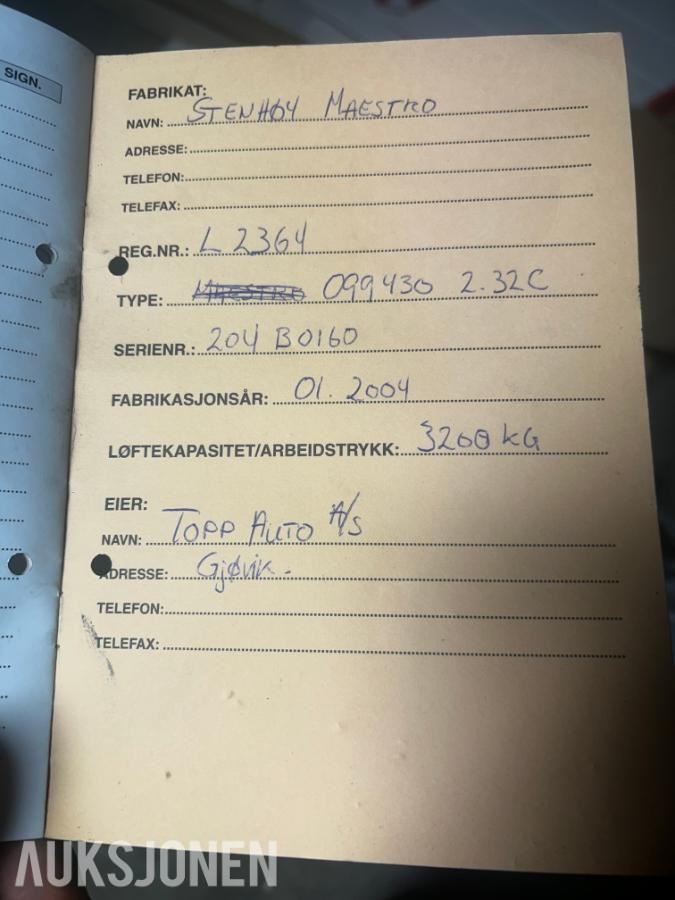 SIGN.
FABRIKAT:
NAVN: STENHØY MAESTRO
ADRESSE:
TELEFON:
TELEFAX:
REG.NR.: L 2364
TYPE: MAESTRO 099430 2.32C
SERIENR.: 204 B0160
FABRIKASJONSÅR: 01. 2004
LØFTEKAPASITET/ARBEIDSTRYKK: 3200 KG
EIER:
NAVN: TOPP AUTO A/S
ADRESSE: Gjøvik.
TELEFON:
TELEFAX:
AUKSJONEN